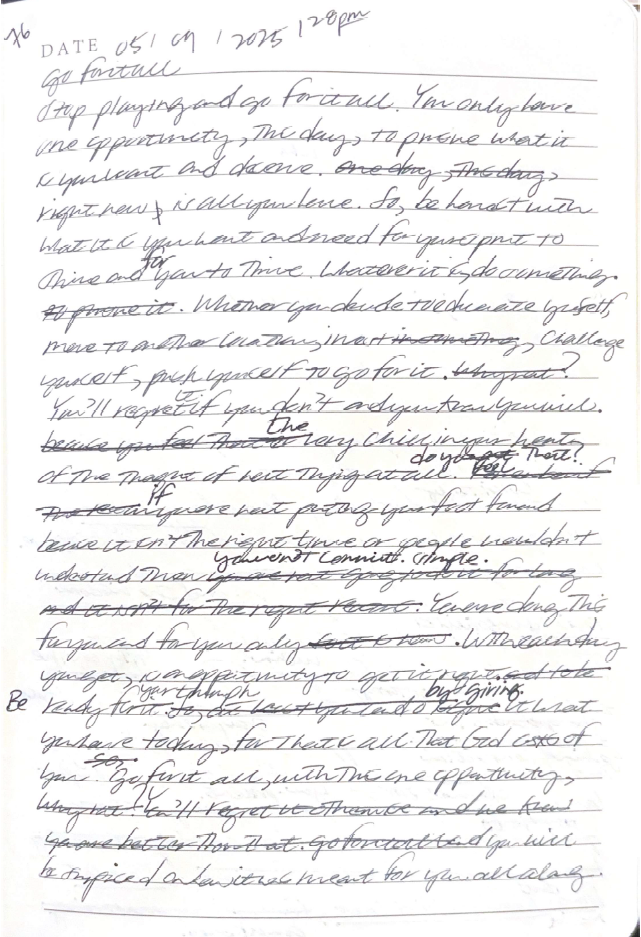 76
DATE 05/ 09 / 2025 1:28pm
Go For it all
Stop playing and go for it all. You only have
one opportunity, this day, to prove what it
is you want and deserve. one day, this day,
right now, is all you have. So, be honest with
what it is you want and need for your spirit to
thrive and for you to thrive. Whatever it is, do something
to prove it. Whether you decide to educate yourself,
move to another location, invest in something, challenge
yourself, push yourself to go for it. Why not?
You'll regret it if you don't and you know you will.
because you feel that the very chill in your heart,
of the thought of not trying at all. do you feel that?
If you're not putting your foot forward
because it isn't the right time or people wouldn't
understand then you won't commit. Simple.
and it isn't for the right reason. You are doing this
for you and for you only. With each day
you get, is an opportunity to get it right. and to be
Be ready first. by giving it what
you have today, for that is all that God asks of
you. So, Go for it all, with the one opportunity,
why not? You'll regret it otherwise and we know
you are better than that. Go for it all and you will
be surprised on how it was meant for you all along.